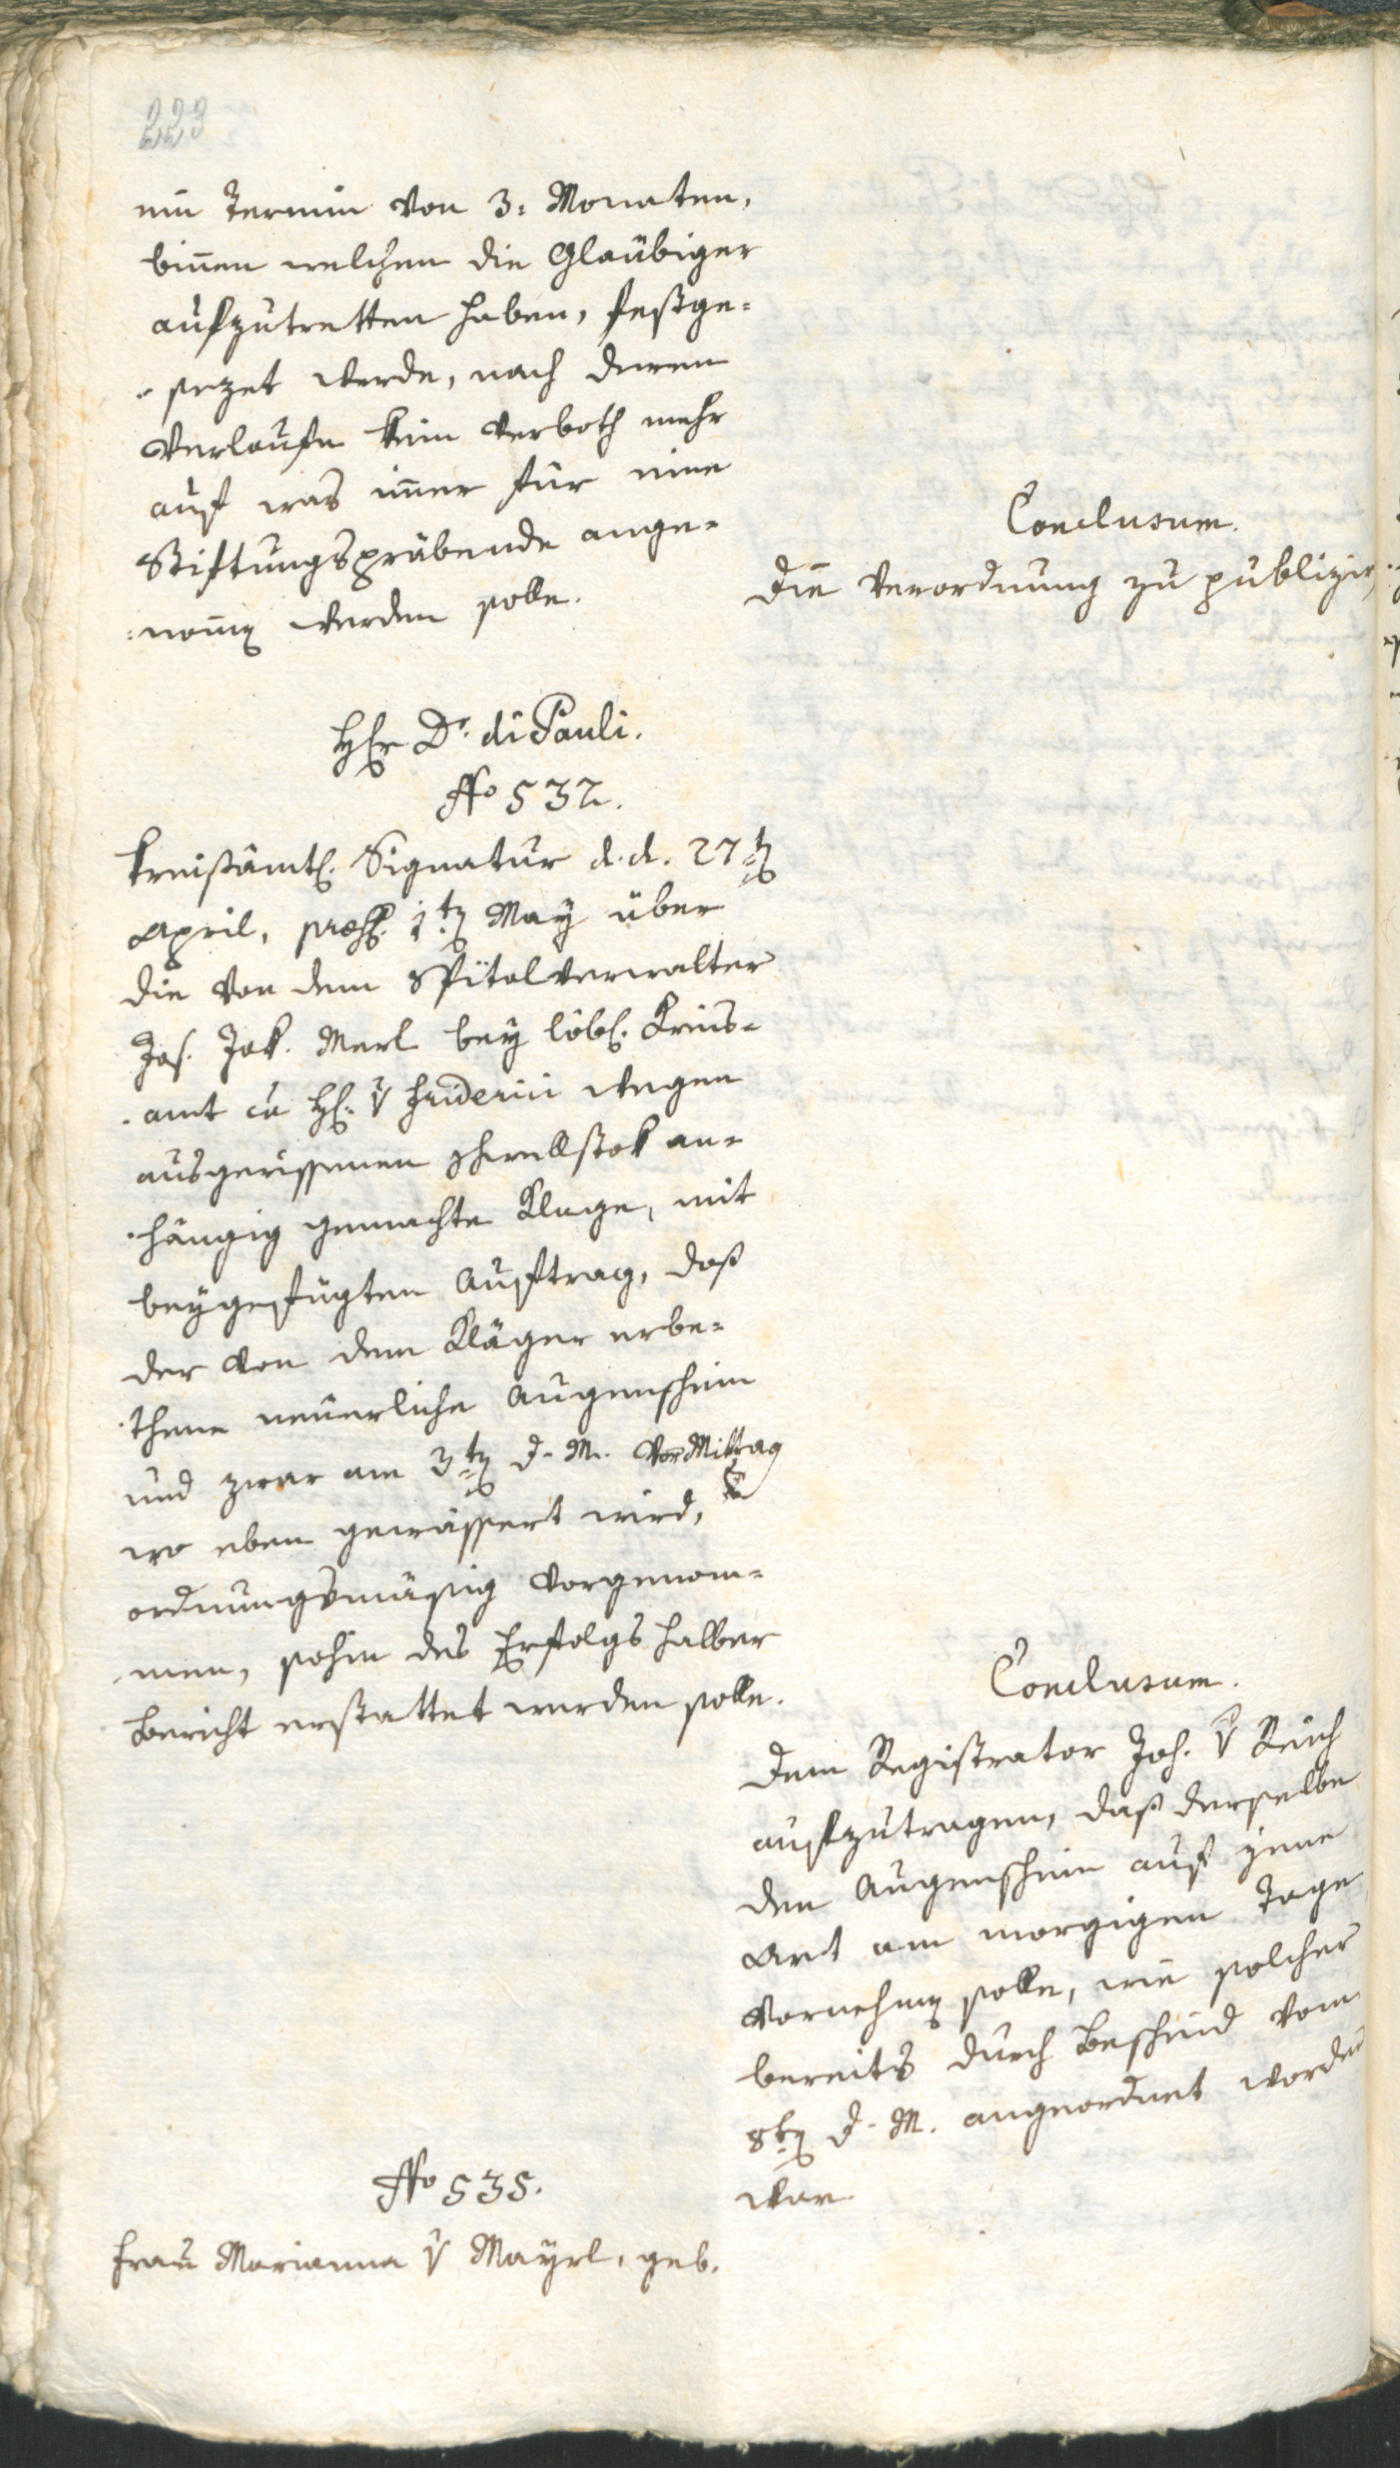 223
ein Termin von 3: Monaten,
binnen welchen die Glaübiger
aufzutretten haben, festge¬
¬sezet werde, nach deren
Verlaufe kein Verboth mehr
auf was imer für eine
Stiftungspräbende ange¬
¬nomen werden solle.
Conclusum.
Die Verordnung zu publizir
Hr Dr. di Pauli.
No 532.
Kreisämtl. Signatur d. d. 27ten
April, præs. 1ten May über
die von dem Spitalverwalter
Jos. Jak. Merl bey löbl. Kreis¬
¬amt ca H. v Friderici wegen
ausgerissenen Schwellstok an¬
¬hängig gemachte Klage, mit
beygefügten Auftrag, daß
der von dem Kläger erbe¬
¬thene neuerliche Augenschein
und zwar am 3ten d. M. VorMittag
wo eben gewässert wird,
ordnungsmäßig vorgenom¬
¬men, sohin des Erfolgs halber
Bericht erstattet werden solle.
Conclusum.
Dem Registrator Joh. v Reich
aufzutragen, daß derselbe
den Augenschein auf jene
Art am morgigen Tage
vornehmen solle, wie solcher
bereits durch Bescheid vom
8ten d. M. angeordnet worden
war.
No 535.
Frau Marianna v Mayrl, geb.